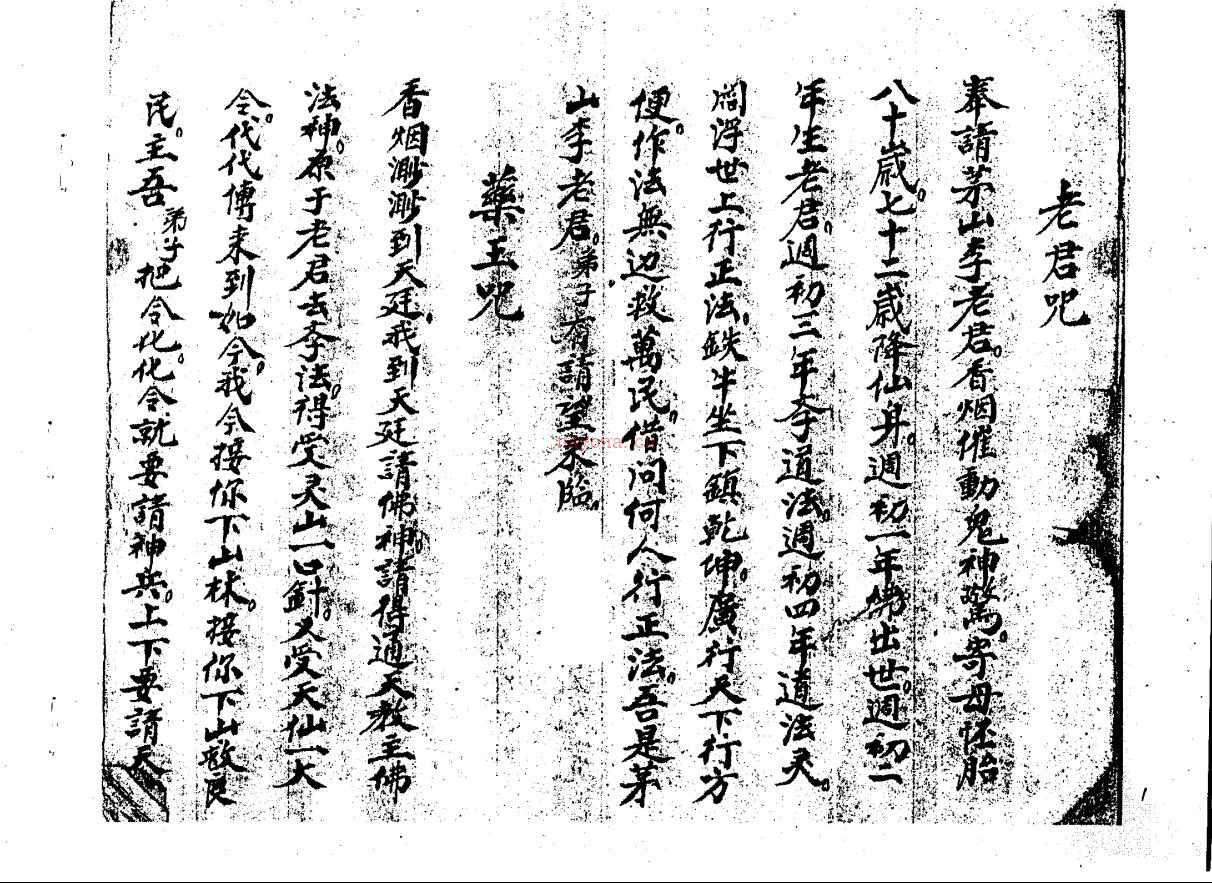 老君咒
奉請茅山李老君。香烟催動鬼神驚。寄母怀胎
八十歲。七十二歲降仙身。週初一年佛出世。週初二
年生老君。週初三年斈道法。週初四年道法灵。
閻浮世上行正法。鉄牛坐下鎮乾坤。廣行天下行方
便。作法無边救萬民。借问何人行正法。吾是茅
山李老君。弟子有請望来臨。
藥王咒
香烟渺渺到天廷。我到天廷請佛神。請得通天教主佛
法神。原于老君去斈法。得受灵山一口針。又受天仙一大
令。代代傳来到如今。我今接你下山林。接你下山救良
民。主吾弟子把令化。化令就要請神兵。上下要請天
1